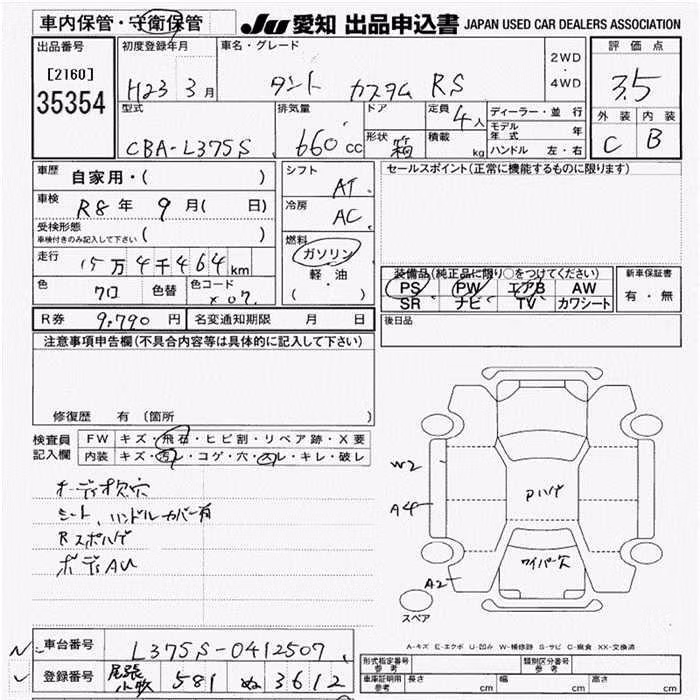 車内保管・守衛保管
JU 愛知 出品申込書 JAPAN USED CAR DEALERS ASSOCIATION
出品番号
[2160]
35354
初度登録年月
H23 3月
車名・グレード
タント カスタム RS
2WD
・
4WD
評価点
3.5
外装 内装
C B
型式
CBA-L375S
排気量
660cc
ドア
形状
箱
定員 4人
積載 kg
ディーラー・並行
モデル年式 年
ハンドル 左・右
車歴 自家用・( )
車検 R8年 9月( 日)
受検形態
車検付きのみ記入して下さい ( )
走行 15万4千464km
色 クロ 色替 色コード X07
シフト
AT
冷房
AC
燃料
ガソリン
軽・油
( )
セールスポイント(正常に機能するものに限ります)
装備品(純正品に限り○をつけてください)
PS PW エアB AW
SR ナビ TV カワシート
新車保証書
有・無
後日品
R券 9,790円 名変通知期限 月 日
注意事項申告欄(不具合内容等は具体的に記入して下さい)
修復歴 有〔箇所 〕
検査員
記入欄
FW キズ・飛石・ヒビ割・リペア跡・X要
内装 キズ・汚レ・コゲ・穴・スレ・キレ・破レ
オーディオ欠穴
シート、ハンドルカバー有
Rスポハゲ
ボディAU
W2
A4
A2
Pハゲ
ワイパー欠
スペア
A-キズ E-エクボ U-凹み W-補修跡 S-サビ C-腐食 XX-交換済
車台番号 L375S-0412507
登録番号 尾張小牧 581 ぬ 3612
形式指定番号
参考
類別区分番号
参考
車庫証明用
参考
長さ cm 幅 cm 高さ cm